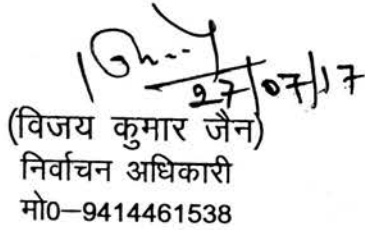 27/07/17
(विजय कुमार जैन)
निर्वाचन अधिकारी
मो0-9414461538